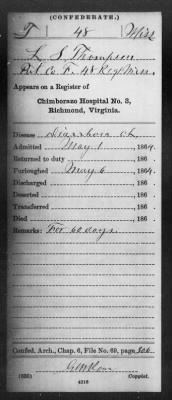 (CONFEDERATE.)
T 48 Miss
L. S. Thompson
Pvt. Co. F. 48 Reg't Miss.
Appears on a Register of
Chimborazo Hospital No. 3,
Richmond, Virginia.
Disease diarrhoea ch
Admitted May 1 1864.
Returned to duty 186 .
Furloughed May 6 1864.
Discharged 186 .
Deserted 186 .
Transferred 186 .
Died 186 .
Remarks: For 60 days.
Confed. Arch., Chap. 6, File No. 69, page 306
(635) Copyist.
4218